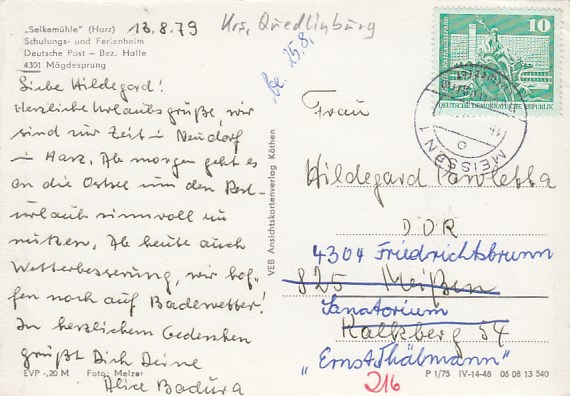 „Selkemühle" (Harz) 13.8.79 Krs. Quedlinburg
Schulungs- und Ferienheim
Deutsche Post – Bez. Halle
4301 Mägdesprung
be. 25.8.
Liebe Hildegard!
Herzliche Urlaubsgrüße, wir
sind zur Zeit in Neudorf
im Harz. Ab morgen geht es
an die Ostsee um den Rest-
urlaub sinnvoll zu
nützen. Ab heute auch
Wetterbesserung, wir hof-
fen noch auf Badewetter!
In herzlichem Gedenken
grüßt Dich Deine
Alice Badura
EVP -,20 M Foto: Melzer
VEB Ansichtskartenverlag Köthen
10
DEUTSCHE DEMOKRATISCHE REPUBLIK
MEISSEN 1
Frau
Hildegard
DDR
4304 Friedrichtsbrunn
825 Meißen
Sanatorium
Kalkberg 54
„Ernst Thälmann"
216
P 1/75 IV-14-48 05 08 13 540